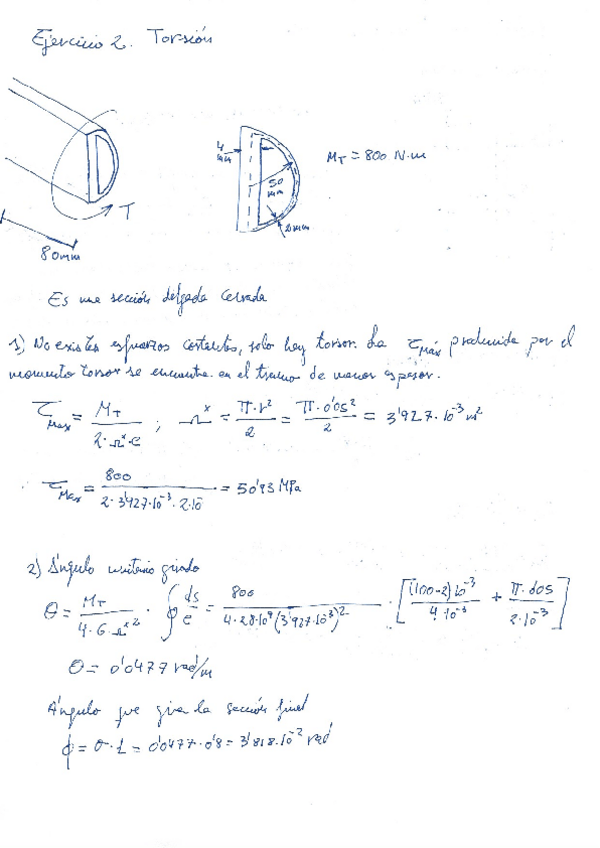 Ejercicio 2. Torsión
4 mm
50 mm
2mm
M_T = 800 N·m
T
80mm
Es una sección delgada cerrada
1) No existen esfuerzos cortantes, solo hay torsor. La τmáx producida por el
momento torsor se encuentra en el tramo de menor espesor.
τmax = M_T / (2·Ω*·e) ; Ω* = π·r² / 2 = π·0'05² / 2 = 3'927·10⁻³ m²
τmax = 800 / (2·3'927·10⁻³·2·10⁻) = 50'93 MPa
2) Ángulo unitario girado
θ = M_T / (4·G·Ω*²) · ∮ ds/e = 800 / (4·28·10⁹(3'927·10⁻³)²) · [(100-2)10⁻³ / 4·10⁻³ + π·0'05 / 2·10⁻³]
θ = 0'0477 rad/m
Ángulo que gira la sección final
ϕ = θ·L = 0'0477·0'8 = 3'818·10⁻² rad